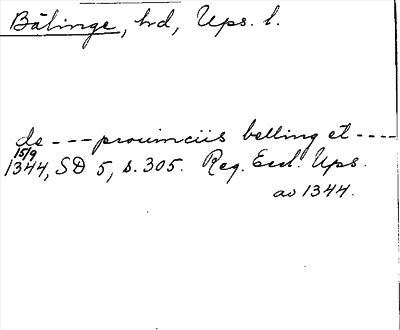 Bälinge, hd, Ups. l.
de --- prouinciis belling et ----
15/9
1344, SD 5, s. 305. Reg. Eccl. Ups.
av 1344.